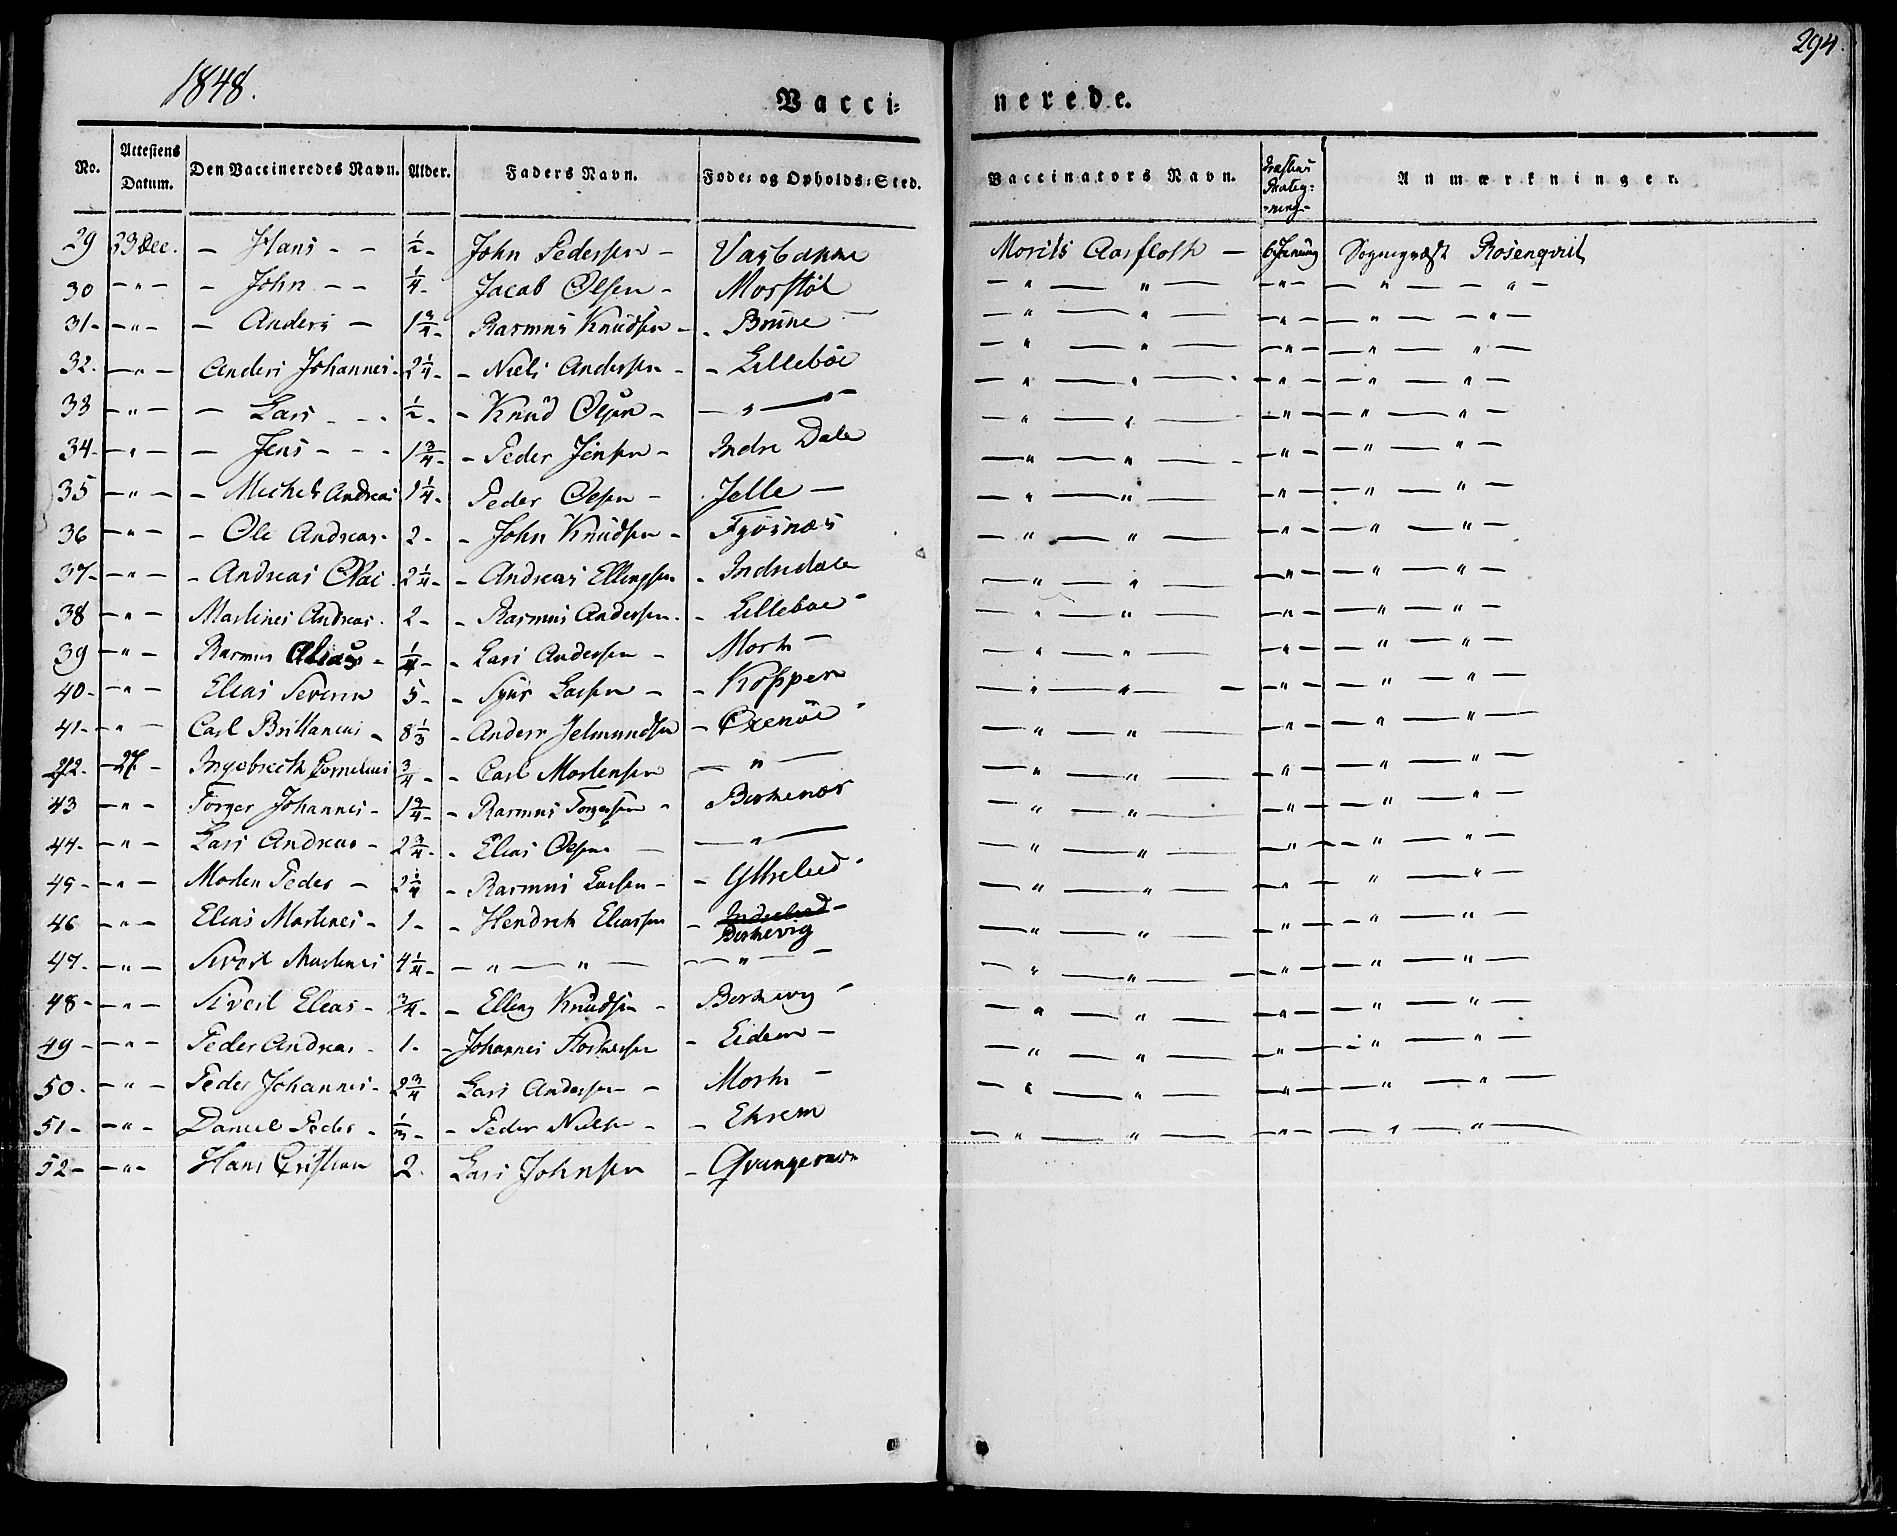 1848.
294.
Vacci= nerede.
No. Attestens Datum. Den Vaccineredes Navn. Alder. Faders Navn. Føde= og Opholds=Sted. Vaccinators Navn. Anmærkninger.
29 23 Dec. - Hans - - ½ - John Pedersen - Morits Aarfloth - 6 Sognepræst Rosenqvist
30 - " - - John - - ¼ - Jacob Olsen - Morstöl - " — " — - " - — " — - " -
31 - - " - - Anders - 1¾ - Rasmus Knudsen - - " — " — - " - — " — - " -
32 - - " - Anders Johannes - 2¼ - Niels Andersen - - Lilleböe - " — " — - " - — " — " -
33 - " - - Lars - - - ½ - - Knud Olsen - - " — - " — " — - " - — " — " -
34 - - " - - Jens - - - 1¾ - - Peder Jensen - Indre Dale - " — " — - " - — " — " -
35 - " - - Michel Andreas 1¼ - Peder Olsen - Jelle - - " — " — - " - — " — " -
36 - " - - Ole Andreas - 2 - - John Knudsen - - " — " — - " - — " — " -
37 - - " - - Andreas Olai 2¼ - - Andreas Ellingsen - Indredale - " — " — - " - — " — " -
38 - " - Martines Andreas - 2 - - Rasmus Andersen - - Lilleboe - - " — " — - " - — " — " -
39 - " - Rasmus - ¼ - - Lars Andersen - Mork - - " — " — - " - — " — " -
40 - - " - Elias Severin 5 - - Lassen - - Koppen - " — " — - " - — " — " -
41 - - " - Carl - 8⅓ - Anders Jetmundsen - Oxenöe - - " — " — - " - — " — " -
42 - 27 - Ingebreth Cornelius ¾ - - Carl Mortensen - " - - " — " — - " - — " — " -
43 - " - Torger Johannes - 1¾ - - Rasmus Torgersen - - " — " — - " - — " — " -
44 - - " - Lars Andreas - 2¾ - - Elias Olsen - - " - - " — " — - " - — " — " -
45 - - " - Morten Peder - 2¼ - Rasmus Lassen - - - " — " — - " - — " — " -
46 - " - Elias Martines - 1 - - Hendrik Eliassen - Birkevig - " — " — - " - — " — " -
47 - - " - Sivert Martines 4¼ - - " — " — - " - - " — " — - " - — " — " -
48 - - " - Sivert Elias - ¾ - - Elling Knudsen - - " — " — - " - — " — " -
49 - - " - Peder Andreas - 1 - - Johannes - Eidem - - " — " — - " - — " — " -
50 - - " - Peder Johannes - 2¾ Lars Andersen - Mork - - " — " — - " - — " — " -
51 - - " - Daniel Peder - ⅓ - - Peder Nielsen - - Ekrem - " — " — - " - — " — " -
52 - - " - Hans Cristian 2 - Lars Johnsen